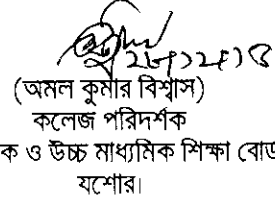 (অমল কুমার বিশ্বাস)
কলেজ পরিদর্শক
ক ও উচ্চ মাধ্যমিক শিক্ষা বোর্ড
যশোর।